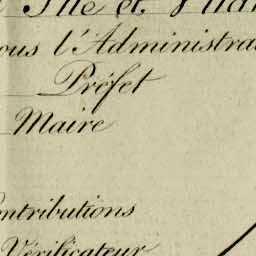 Ille et Vilai
ous l'Administra
Préfet
Maire
ontributions
Vérificateur